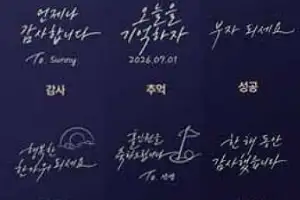 언제나
감사합니다
To. Sunny
오늘을
기억하자
2026.07.01
부자 되세요
감사
추억
성공
행복한
한가위 되세요
홀인원을
축하드립니다
To.
한 해 동안
감사했습니다